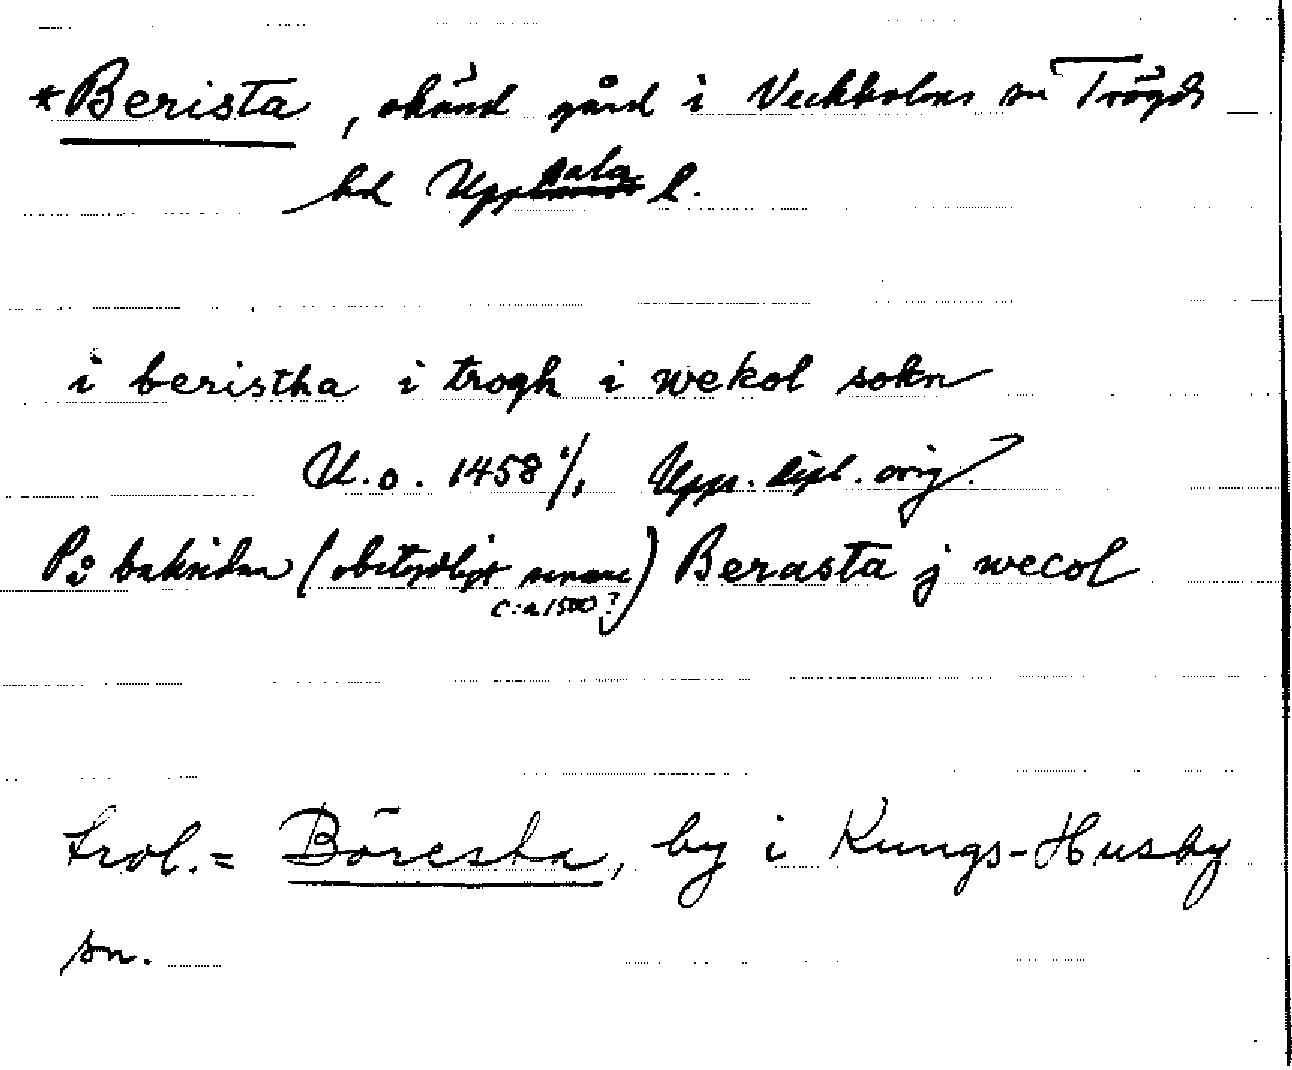 *Berista, okänd gård i Veckholms sn Trögds
hd Uppsala l.
i beristha i trogh i wekol sokn
U.o. 1458 1/1 Upps. dipl. orig.
På baksidan (obetydligt senare) Berasta j wecol
c:a 1500?
trol. = Böresta, by i Kungs-Husby
sn.